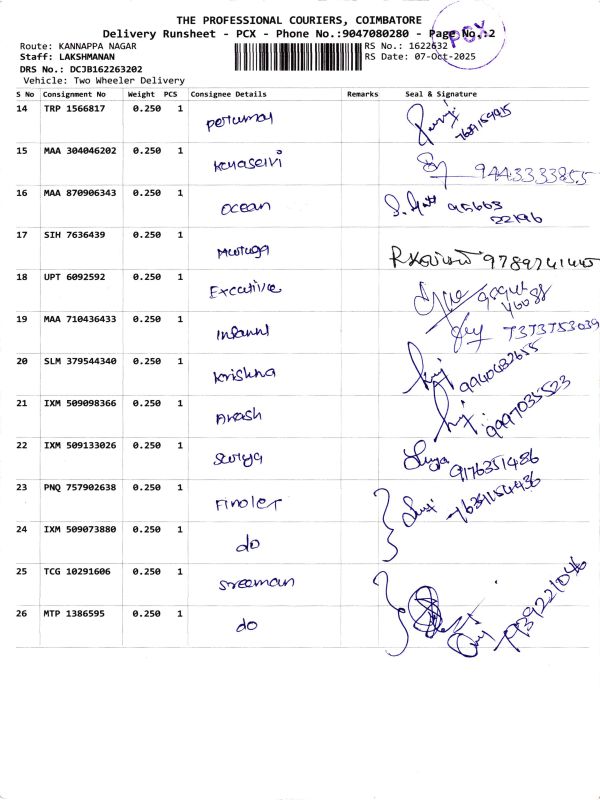 THE PROFESSIONAL COURIERS, COIMBATORE
Delivery Runsheet - PCX - Phone No.:9047080280 - Page No.:2
PCX
Route: KANNAPPA NAGAR
RS No.: 1622632
Staff: LAKSHMANAN
RS Date: 07-Oct-2025
DRS No.: DCJB162263202
Vehicle: Two Wheeler Delivery
S No Consignment No Weight PCS Consignee Details Remarks Seal & Signature
14 TRP 1566817 0.250 1 perumal
15 MAA 304046202 0.250 1 9443333855
16 MAA 870906343 0.250 1 ocean 95663 22196
17 SIH 7636439 0.250 1 Muruga 9789741445
18 UPT 6092592 0.250 1 Excutive
19 MAA 710436433 0.250 1 Infannt 7373753039
20 SLM 379544340 0.250 1 Krishna 9940432655
21 IXM 509098366 0.250 1 Akash 9997035523
22 IXM 509133026 0.250 1 Surya 9176351486
23 PNQ 757902638 0.250 1 Finolex
24 IXM 509073880 0.250 1 do
25 TCG 10291606 0.250 1 Sreeman
26 MTP 1386595 0.250 1 do